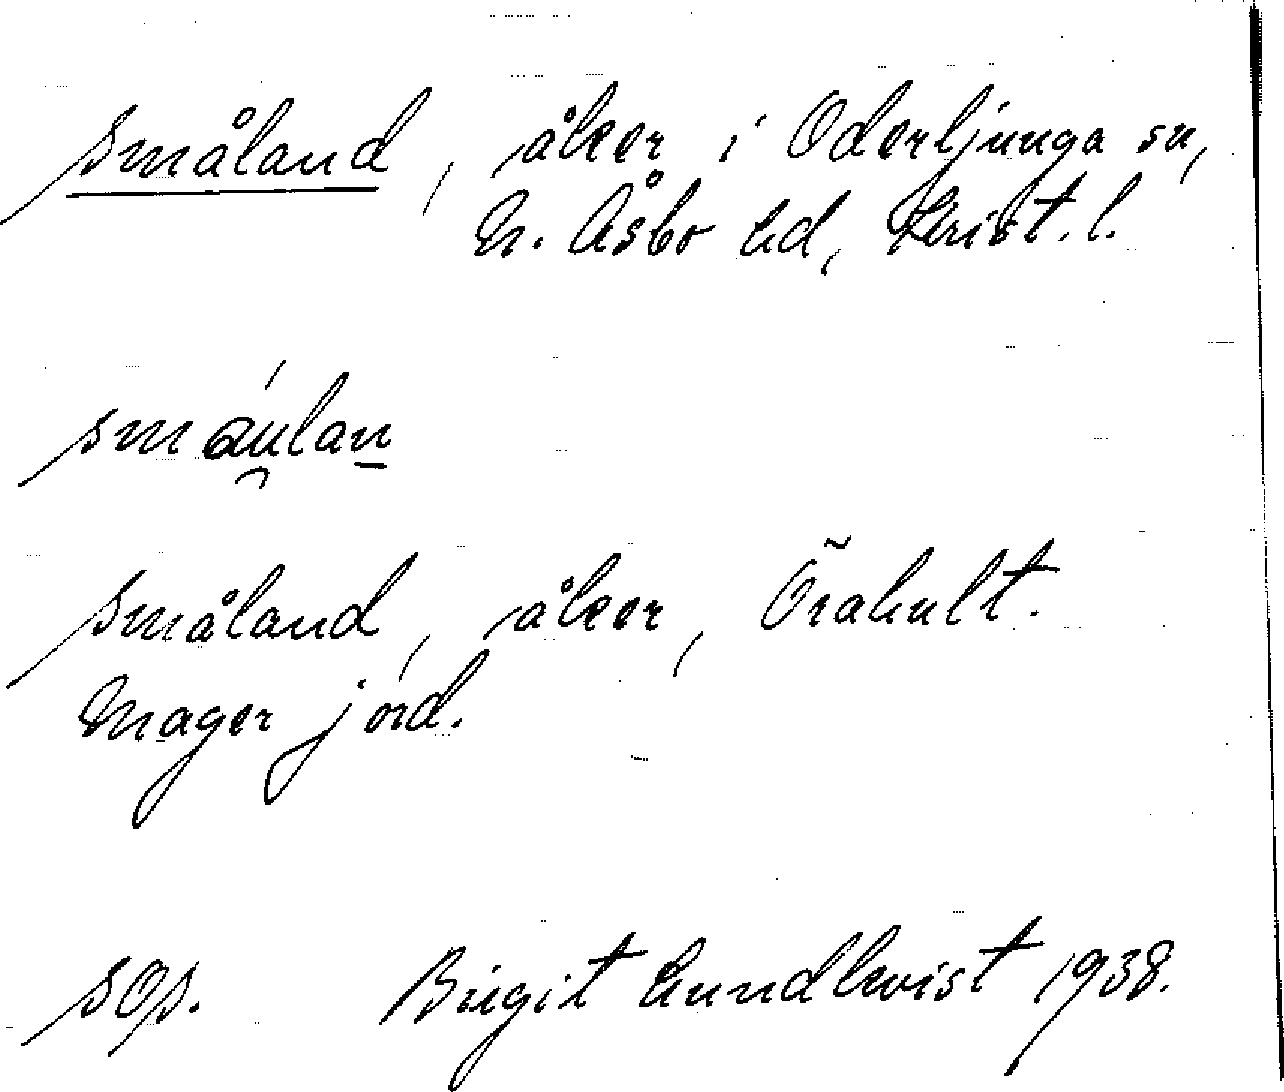 småland, åker i Oderljunga sn,
N. Åsbo hd, Krist. l.
småland, åker, Örahult.
Mager jord.
sop. Birgit Lundkvist 1938.